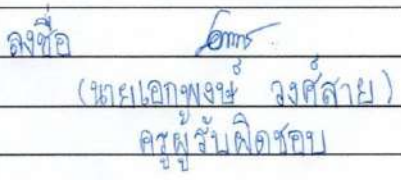 ลงชื่อ
(นายเอกพงษ์ วงศ์สาย)
ครูผู้รับผิดชอบ